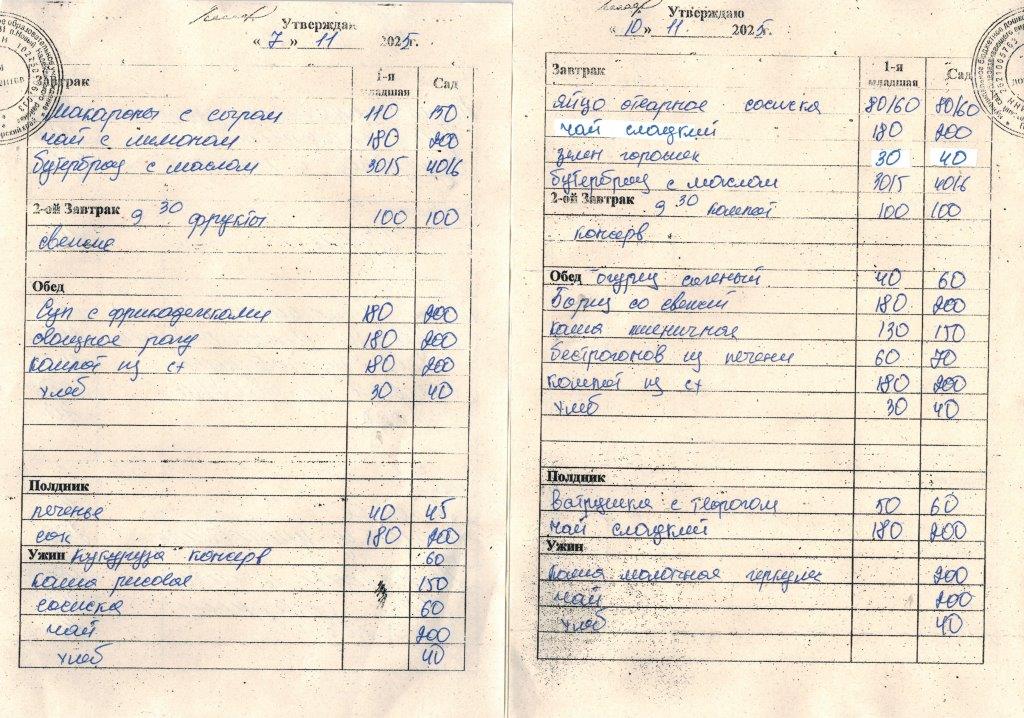 Утверждаю
« 7 » 11 2025г.
Завтрак 1-я младшая Сад
макароны с сыром 110 150
чай с лимоном 180 200
бутерброд с маслом 30/5 40/6
2-ой Завтрак 9 30 фрукты 100 100
свежие
Обед
Суп с фрикадельками 180 200
овощное рагу 180 200
компот из с+ 180 200
хлеб 30 40
Полдник
печенье 40 45
сок 180 200
Ужин кукуруза консерв 60
каша рисовая 150
сосиска 60
чай 200
хлеб 40
Утверждаю
« 10 » 11. 2025г.
Завтрак 1-я младшая Сад
яйцо отварное сосиска 80/60 80/60
чай сладкий 180 200
зелен горошек 30 40
бутерброд с маслом 30/5 40/6
2-ой Завтрак 9 30 компот 100 100
консерв
Обед огурец соленый 40 60
Борщ со свежей 180 200
каша пшеничная 130 150
бестрогонов из печени 60 70
компот из с+ 180 200
хлеб 30 40
Полдник
Ватрушка с творогом 50 60
чай сладкий 180 200
Ужин
каша молочная геркулес 200
чай 200
хлеб 40